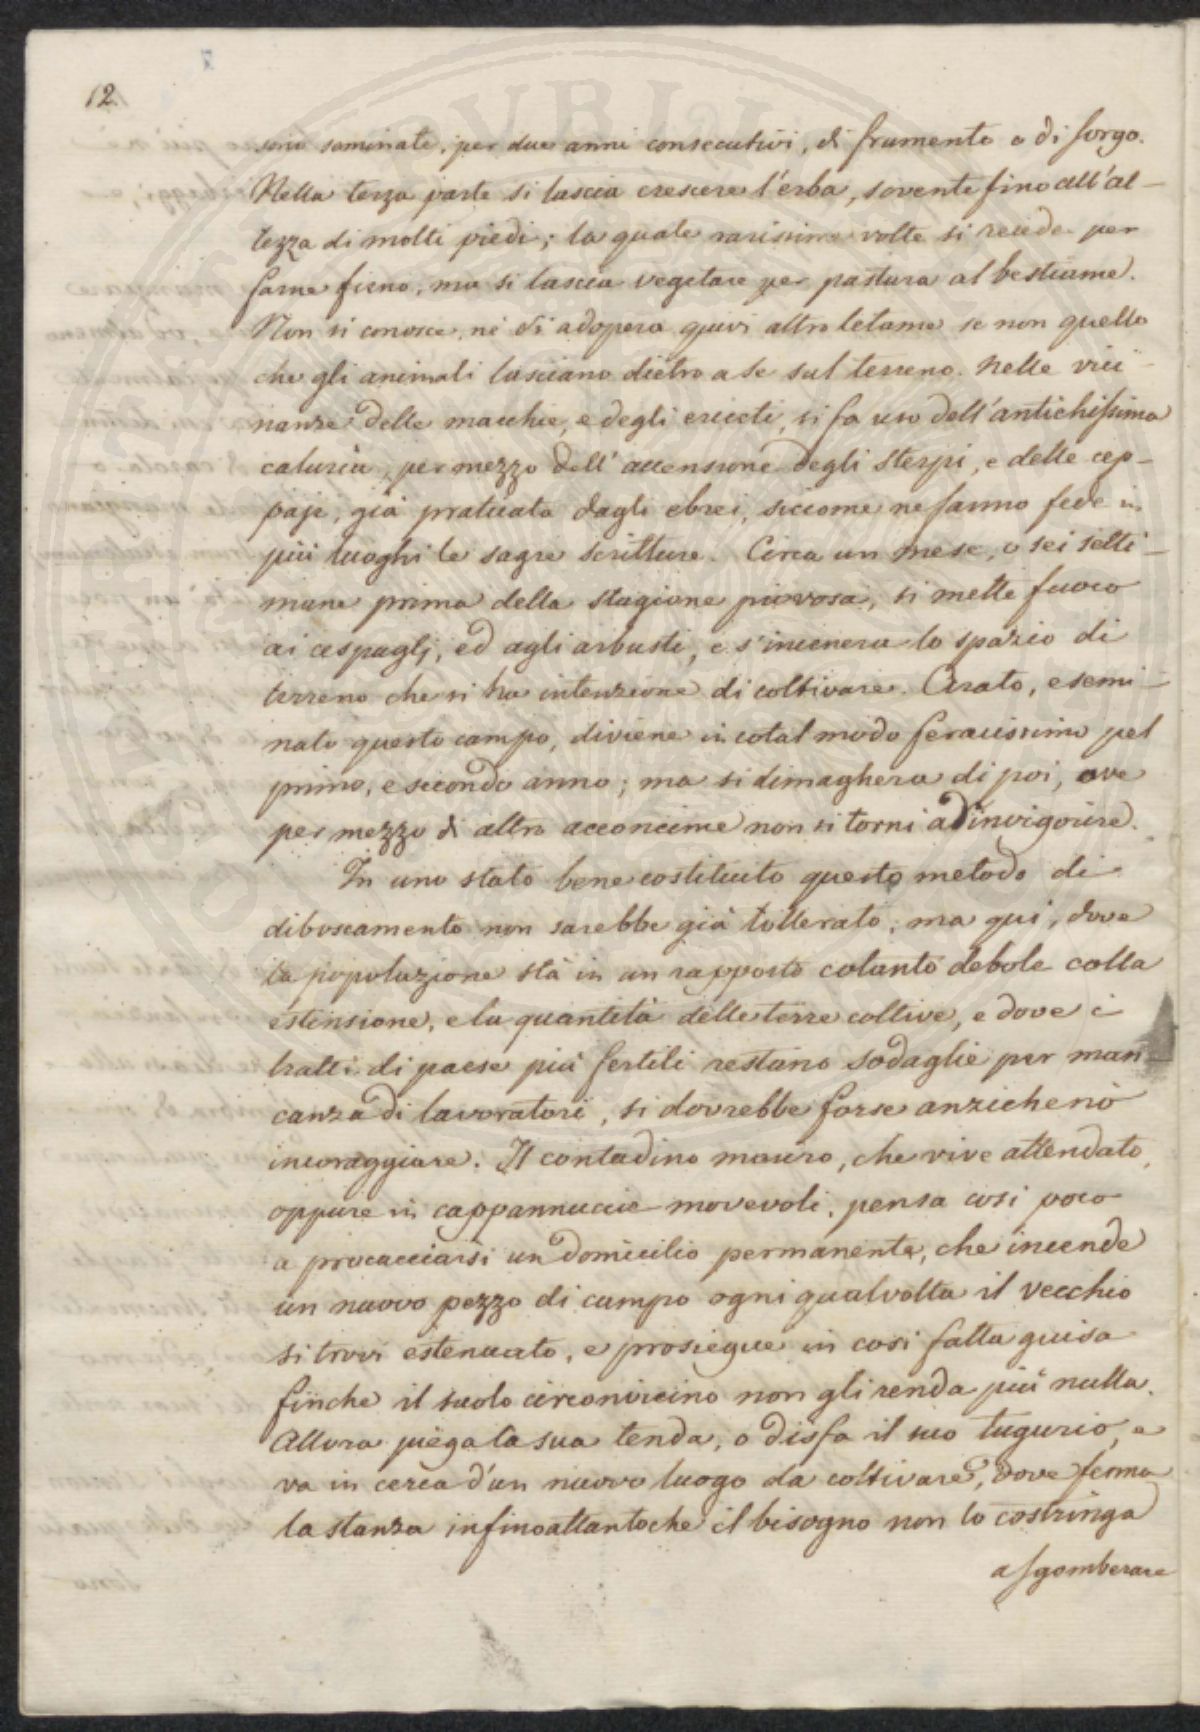 12.
sono seminate, per due anni consecutivi, di frumento o di sorgo.
Nella terza parte si lascia crescere l'erba, sovente fino all'al-
tezza di molti piedi; la quale rarissime volte si recide per
farne fieno, ma si lascia vegetare per pastura al bestiame.
Non si conosce, nè si adopera quivi altro letame se non quello
che gli animali lasciano dietro a se sul terreno. Nelle vici-
nanze delle macchie, e degli ericeti, si fa uso dell'antichissima
caluria, per mezzo dell'accensione degli sterpi, e delle cep-
paje, già praticata dagli ebrei, siccome ne fanno fede in
più luoghi le sagre scritture. Circa un mese, o sei setti-
mane prima della stagione piovosa, si mette fuoco
ai cespuglj, ed agli arbusti, e s'incenera lo spazio di
terreno che si ha intenzione di coltivare. Arato, e semi-
nato questo campo, diviene in cotal modo feracissimo pel
primo, e secondo anno; ma si dimaghera di poi, ove
per mezzo di altro acconcime non si torni ad invigorire.
In uno stato bene costituito questo metodo di
diboscamento non sarebbe già tollerato; ma qui, dove
la popolazione stà in un rapporto cotanto debole colla
estensione, e la quantità delle terre coltive, e dove i
tratti di paese più fertili restano sodaglie per man
canza di lavoratori, si dovrebbe forse anzichenò
incoraggiare. Il contadino mauro, che vive attendato,
oppure in cappannuccie movevoli, pensa così poco
a procacciarsi un domicilio permanente, che incende
un nuovo pezzo di campo ogni qualvolta il vecchio
si trovi estenuato, e prosiegue in così fatta guisa
finche il suolo circonvicino non gli renda più nulla.
Allora piega la sua tenda, o disfa il suo tugurio, e
va in cerca d'un nuovo luogo da coltivare, dove ferma
la stanza infinoattantoche il bisogno non lo costringa
a sgomberare